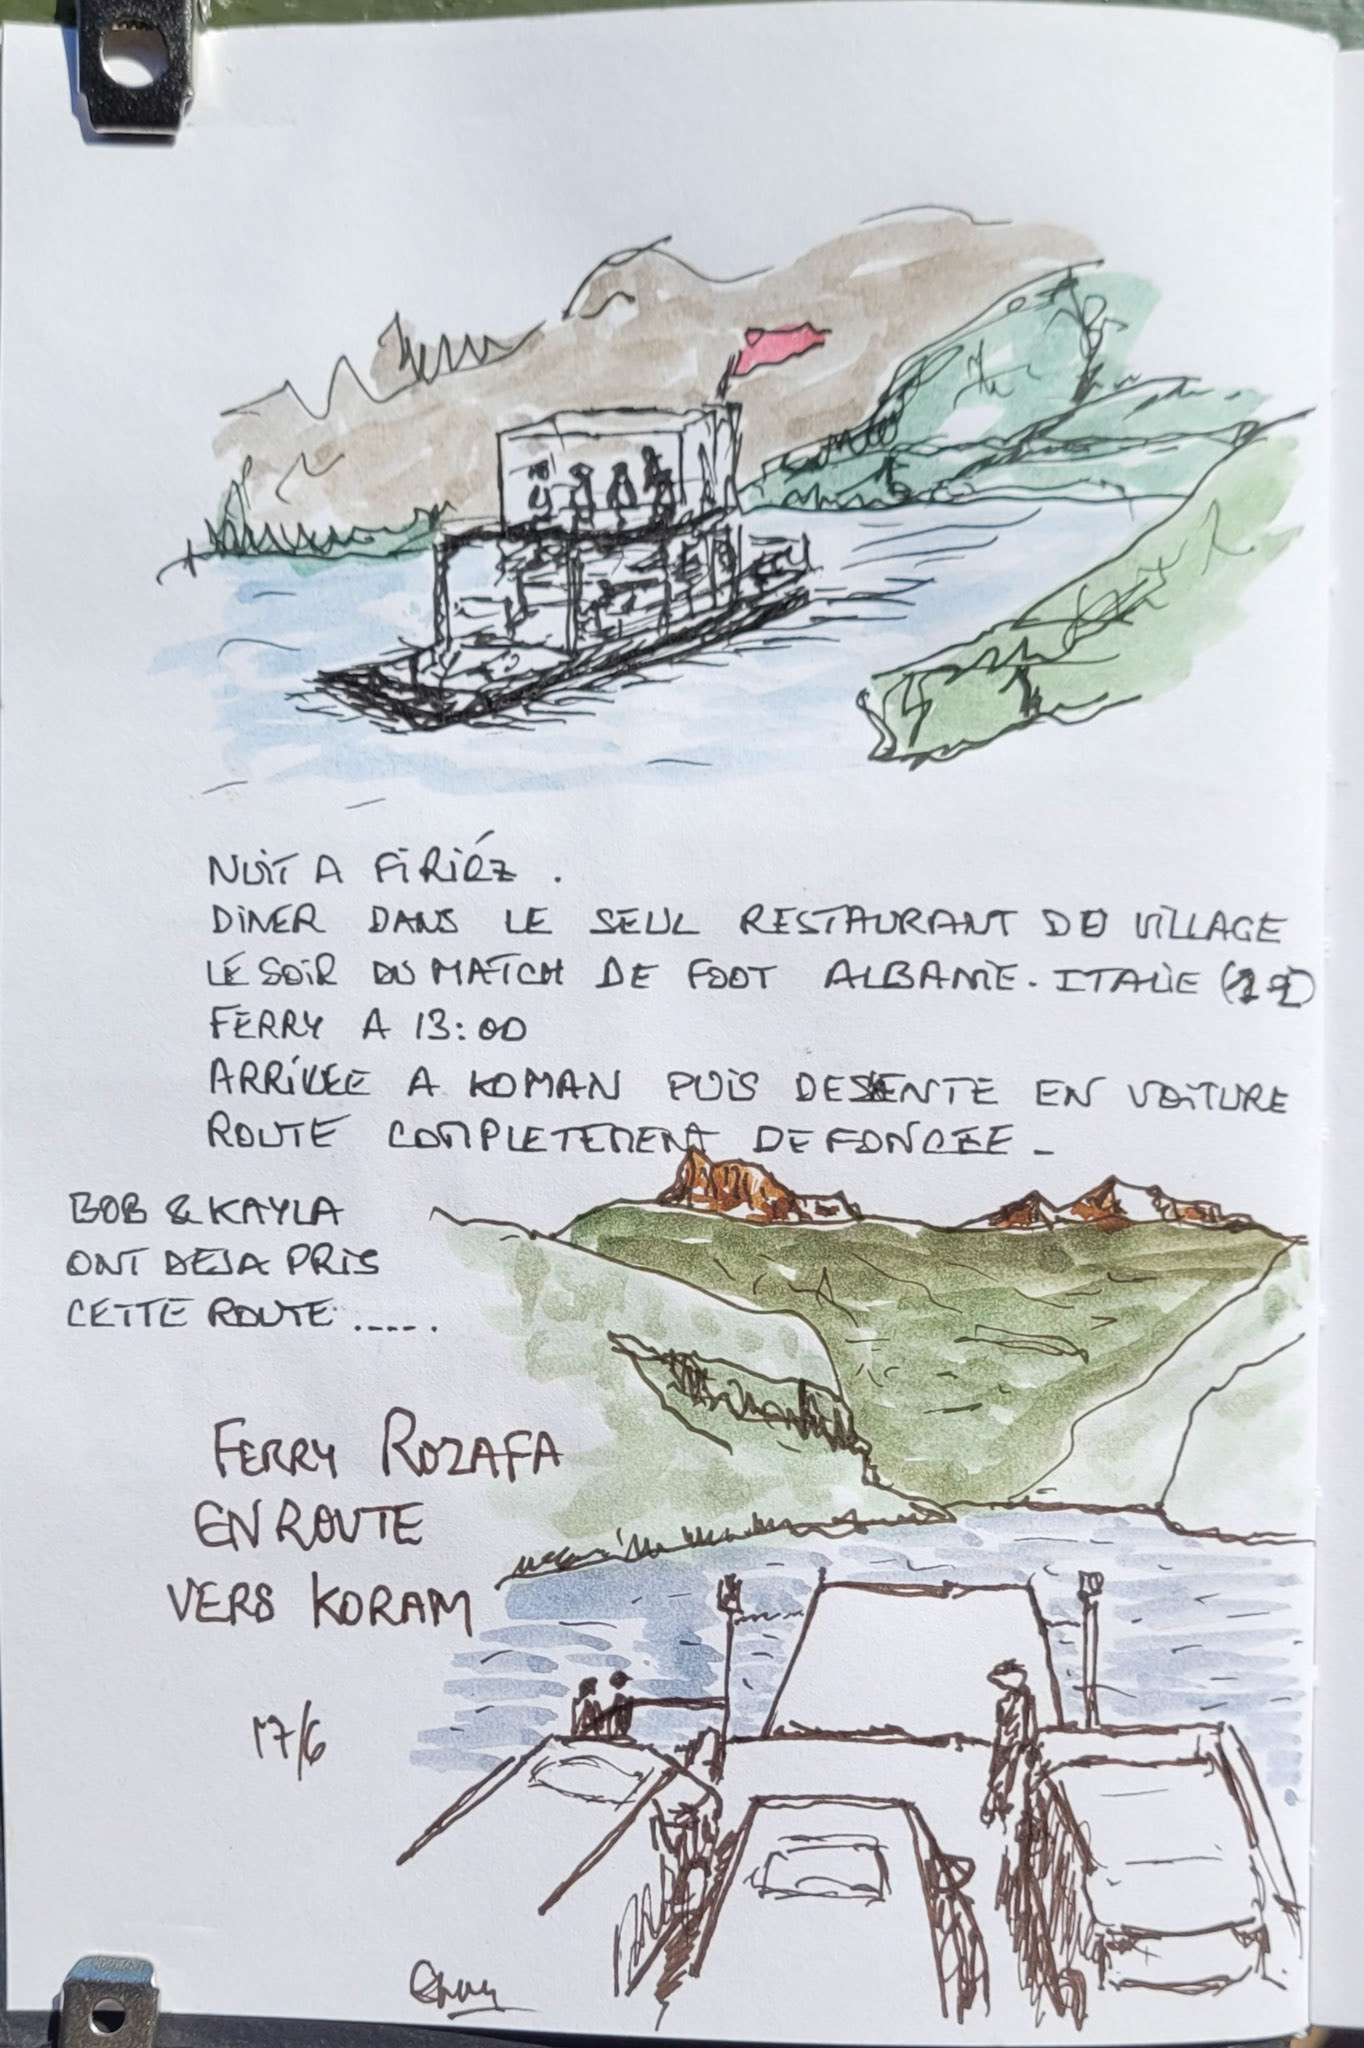 NUIT A FIRIÉZ .
DINER DANS LE SEUL RESTAURANT DU VILLAGE
LE SOIR DU MATCH DE FOOT ALBANIE - ITALIE
FERRY A 13:00
ARRIVEE A KOMAN PUIS DESENTE EN VOITURE
ROUTE COMPLETEMENT DEFONCEE -
BOB & KAYLA
ONT DEJA PRIS
CETTE ROUTE .....
FERRY ROZAFA
EN ROUTE
VERS KORAM
17/6